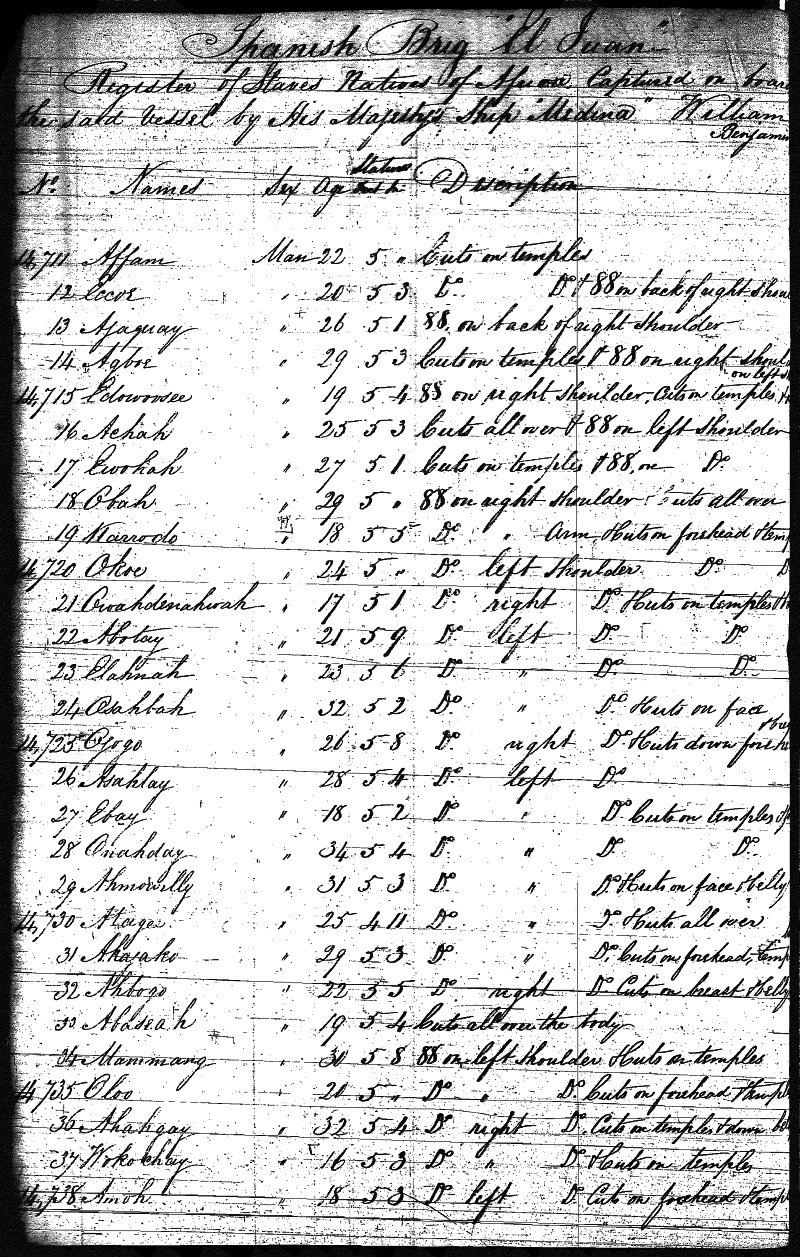 Spanish Brig "El Juan"
Register of Slaves Natives of Africa Captured on board
the said Vessel by His Majesty's Ship "Medina" William
Benjamin
No. Names Sex Age Stature Description
14,711 Affam Man 22 5 " Cuts on temples
12 Eccoe " 20 5 3 Do. Do & 88 on back of right shoul
13 Ajaguay " 26 5 1 88 on back of right shoulder
14 Agboe " 29 5 3 Cuts on temples & 88 on right should
on left s
14,715 Edowoosee " 19 5 4 88 on right shoulder. Cuts on temples &
16 Achah " 25 5 3 Cuts all over & 88 on left shoulder
17 Ewokah " 27 5 1 Cuts on temples & 88 on Do.
18 Obah " 29 5 " 88 on right shoulder & Cuts all over
19 Karrodo " 18 5 5 Do. " Arm & Cuts on forehead & temp
14,720 Okoe " 24 5 " Do. left shoulder Do. D
21 Owahdenahwah " 17 5 1 Do right Do. & Cuts on temples &
22 Abotay " 21 5 9 Do. left Do. Do
23 Elahnah " 23 5 6 Do. " Do. Do.
24 Osahbah " 32 5 2 Do. " Do. & Cuts on face
14,725 Ojogo " 26 5 8 Do. right Do. & Cuts down foreh
26 Asahlay " 28 5 4 Do left Do.
27 Ebay " 18 5 2 Do. " Do. Cuts on temples &
28 Onahday " 34 5 4 Do. " Do. Do.
29 Ahmowilly " 31 5 3 Do. " Do. & Cuts on face & belly
14,730 Ataga " 25 4 11 Do. " Do. & Cuts all over
31 Akajako " 29 5 3 Do. " Do. Cuts on forehead, temp
32 Ahtogo " 22 5 5 Do right Do. Cuts on breast & belly
33 Abaseah " 19 5 4 Cuts all over the body
34 Mammang " 30 5 8 88 on left shoulder & Cuts on temples
14,735 Oloo " 20 5 " Do " Do. Cuts on forehead & templ
36 Ahahgay " 32 5 4 Do. right Do. Cuts on temples & down bel
37 Wokochay " 16 5 3 Do " Do. & Cuts on temples
14,738 Amoh " 18 5 3 Do left Do. Cuts on forehead & temp